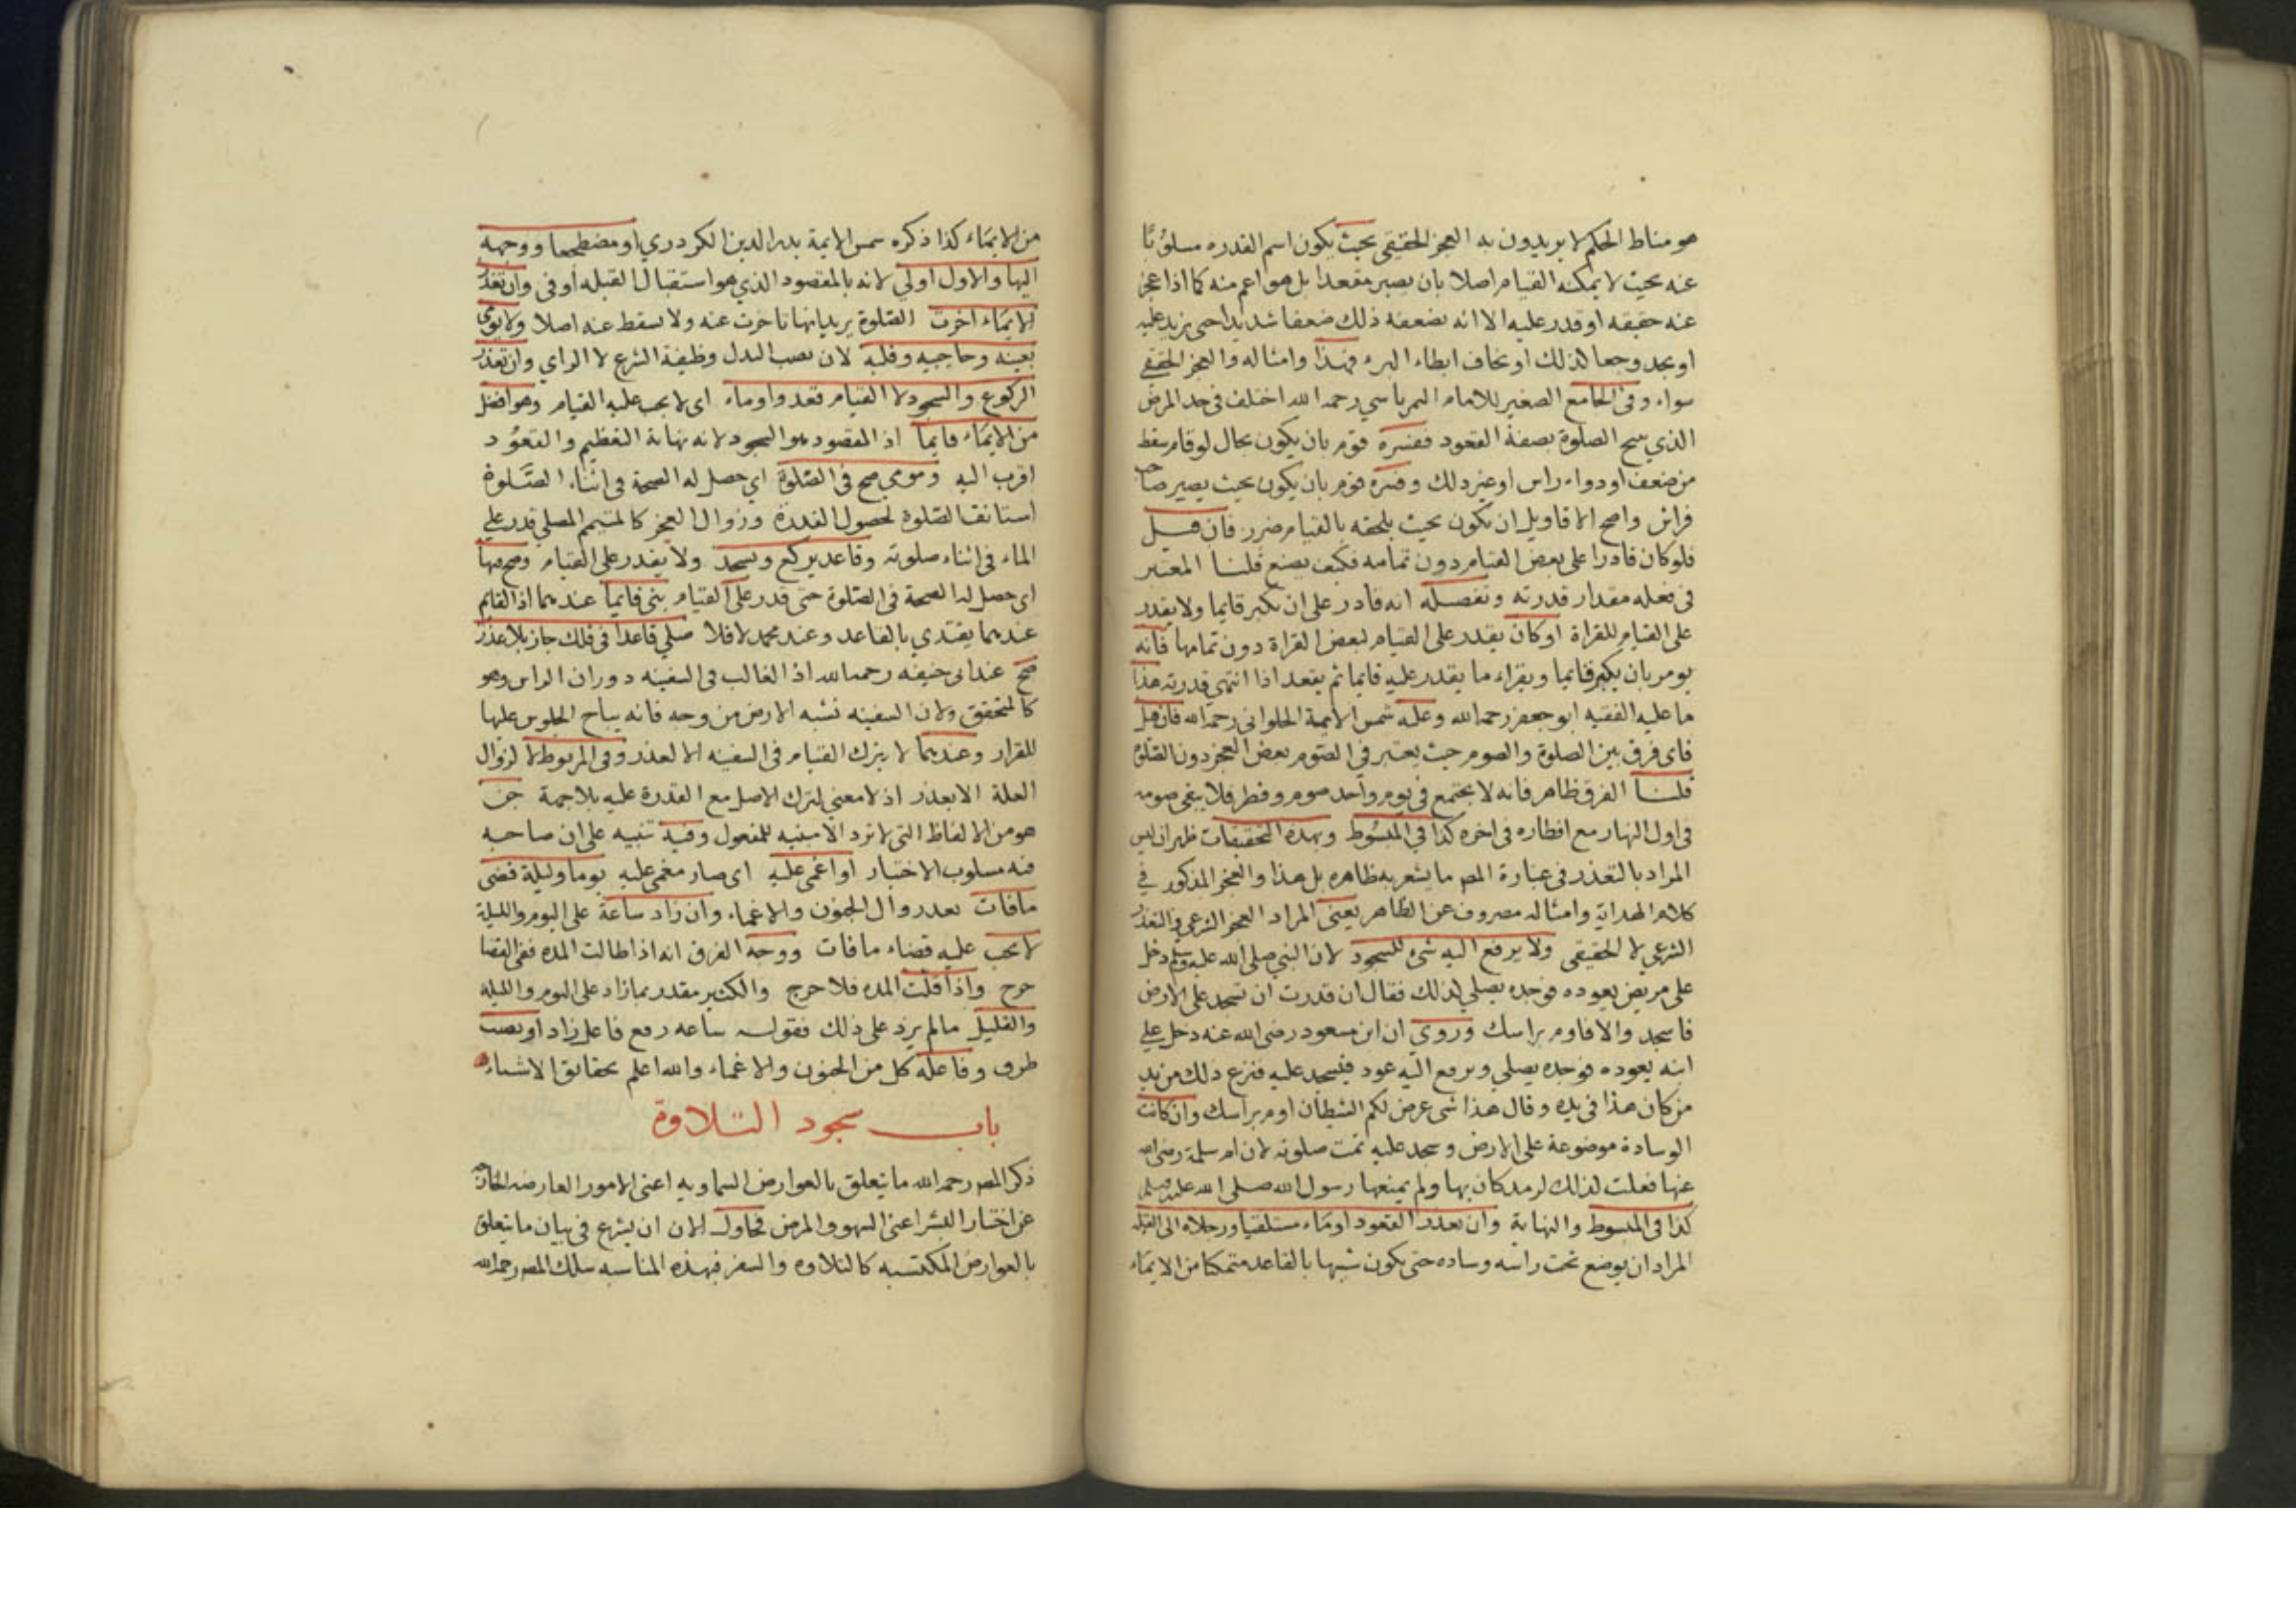 هو مناط الحكم لا يريدون به العجز الحقيقي بحيث يكون اسم القدره مسلوبًا
عنه بحيث لا يمكنه القيام اصلا بان يصير مقعدا بل هو اعم منه كما اذا عجز
عنه حقيقه او قدر عليه الا انه يضعفه ذلك ضعفا شديدا حتى يزيد عليه
او يجد وجعا لذلك او يخاف ابطاء البرء فهذا وامثاله والعجز الحقيقي
سواء وفي الجامع الصغير للامام التمرتاسي رحمه الله اختلف في حد المرض
الذي يبيح الصلوة بصفة القعود ففسره قوم بان يكون بحال لو قام سقط
من ضعف او دوار راس او غير ذلك وفسره قوم بان يكون بحيث يصير صاحب
فراش واصح الاقاويل ان يكون بحيث يلحقه بالقيام ضرر فان قيل
فلو كان قادرا على بعض القيام دون تمامه فكيف يصنع قلنا المعتبر
في فعله مقدار قدرته وتفصيله انه قادر على ان يكبر قايما ولا يقدر
على القيام للقراة او كان يقدر على القيام لبعض القراة دون تمامها فانه
يومر بان يكبر قايما ويقراء ما يقدر عليه قايما ثم يقعد اذا انتهى قدرته هذا
ما عليه الفقيه ابو جعفر رحمه الله وعليه شمس الايمة الحلوانى رحمه الله فان قيل
فاى فرق بين الصلوة والصوم حيث يعتبر في الصوم بعض العجز دون الصلوة
قلنا الفرق ظاهر فانه لا يجتمع في يوم واحد صوم وفطر فلا يبقى صومه
فى اول النهار مع افطاره فى اخره كذا في المبسوط وبهذه التحقيقات ظهر ان ليس
المراد بالتعذر في عبارة المص ما يشعر به ظاهره بل هذا والعجز المذكور في
كلام الهداية وامثاله مصروف عن الظاهر يعني المراد العجز الشرعي في التعذر
الشرعي لا الحقيقى ولا يرفع اليه شئ للسجود لان النبي صلى الله عليه وسلم دخل
على مريض يعوده فوجده يصلي لذلك فقال ان قدرت ان تسجد على الارض
فاسجد والا فاوم براسك وروي ان ابن مسعود رضي الله عنه دخل على
ابنه يعوده فوجده يصلي ويرفع اليه عود فيسجد عليه فنزع ذلك من يد
من كان هذا في يده وقال هذا شى عرض لكم الشيطان اوم براسك وان كانت
الوسادة موضوعة على الارض وسجد عليه تمت صلوته لان ام سلمة رضي الله
عنها فعلت لذلك لرمد كان بها ولم يمنعها رسول الله صلى الله عليه وسلم
كذا فى المبسوط والنهاية وان تعذر القعود اوماء مستلقيا ورجلاه الى القبلة
المراد ان يوضع تحت راسه وساده حتى يكون شبيها بالقاعد متمكنا من الايماء
من الايماء كذا ذكره شمس الايمة بدر الدين الكردري او مضطجعا ووجهه
اليها والاول اولي لانه بالمقصود الذي هو استقبال القبله اوفى وان تعذر
الايماء اخرت الصلوة يريد انها تاخرت عنه ولا يسقط عنه اصلا ولا يومي
بعينه وحاجبيه وقلبه لان نصب البدل وظيفة الشرع لا الراي وان تعذر
الركوع والسجود لا القيام قعد واوماء اى لا يجب عليه القيام وهو افضل
من الايماء قايما اذ المقصود هو السجود لانه نهاية التعظيم والقعود
اقرب اليه ومومي صح في الصلوة اي حصل له الصحة في اثناء الصلوة
استانف الصلوة لحصول القدرة وزوال العجز كالمتيمم المصلي قدر علي
الماء في اثناء صلوته وقاعد يركع ويسجد ولا يقدر على القيام وصح فيها
اى حصل له الصحة في الصلوة حتى قدر على القيام بنى قايما عندهما اذ القايم
عندهما يقتدي بالقاعد وعند محمد لا فلا صلي قاعدا في فلك جاز بلا عذر
صح عند ابى حنيفه رحمه الله اذ الغالب في السفينه دوران الراس وهو
كالمتحقق ولان السفينه تشبه الارض من وجه فانه يباح الجلوس عليها
للقرار وعندهما لا يترك القيام في السفينه الا لعذر وفي المربوط لا لزوال
العلة الا بعذر اذ لا معنى لترك الاصل مع القدرة عليه بلا جهة جن
هو من الالفاظ التي لا ترد الا مبنيه للمفعول وفيه تنبيه على ان صاحبه
فيه مسلوب الاختيار او اغمى عليه اى صار مغمى عليه يوما وليلة قضى
ما فات بعد زوال الجنون والاغماء وان زاد ساعة على اليوم والليلة
لا يجب عليه قضاء ما فات ووجه الفرق انه اذا طالت المده ففى القضا
حرج واذا قلت المده فلا حرج والكثير مقدر بما زاد على اليوم والليله
والقليل ما لم يزد على ذلك فقوله ساعه رفع فاعل زاد او نصب
ظرف وفاعله كل من الجنون والاغماء والله اعلم بحقائق الاشياء
باب سجود التلاوة
ذكر المص رحمه الله ما يتعلق بالعوارض السماويه اعنى الامور العارضه الخارجة
عن اختيار البشر اعنى السهو والمرض فحاول الان ان يشرع في بيان ما يتعلق
بالعوارض المكتسبه كالتلاوه والسفر فبهذه المناسبه سلك المص رحمه الله